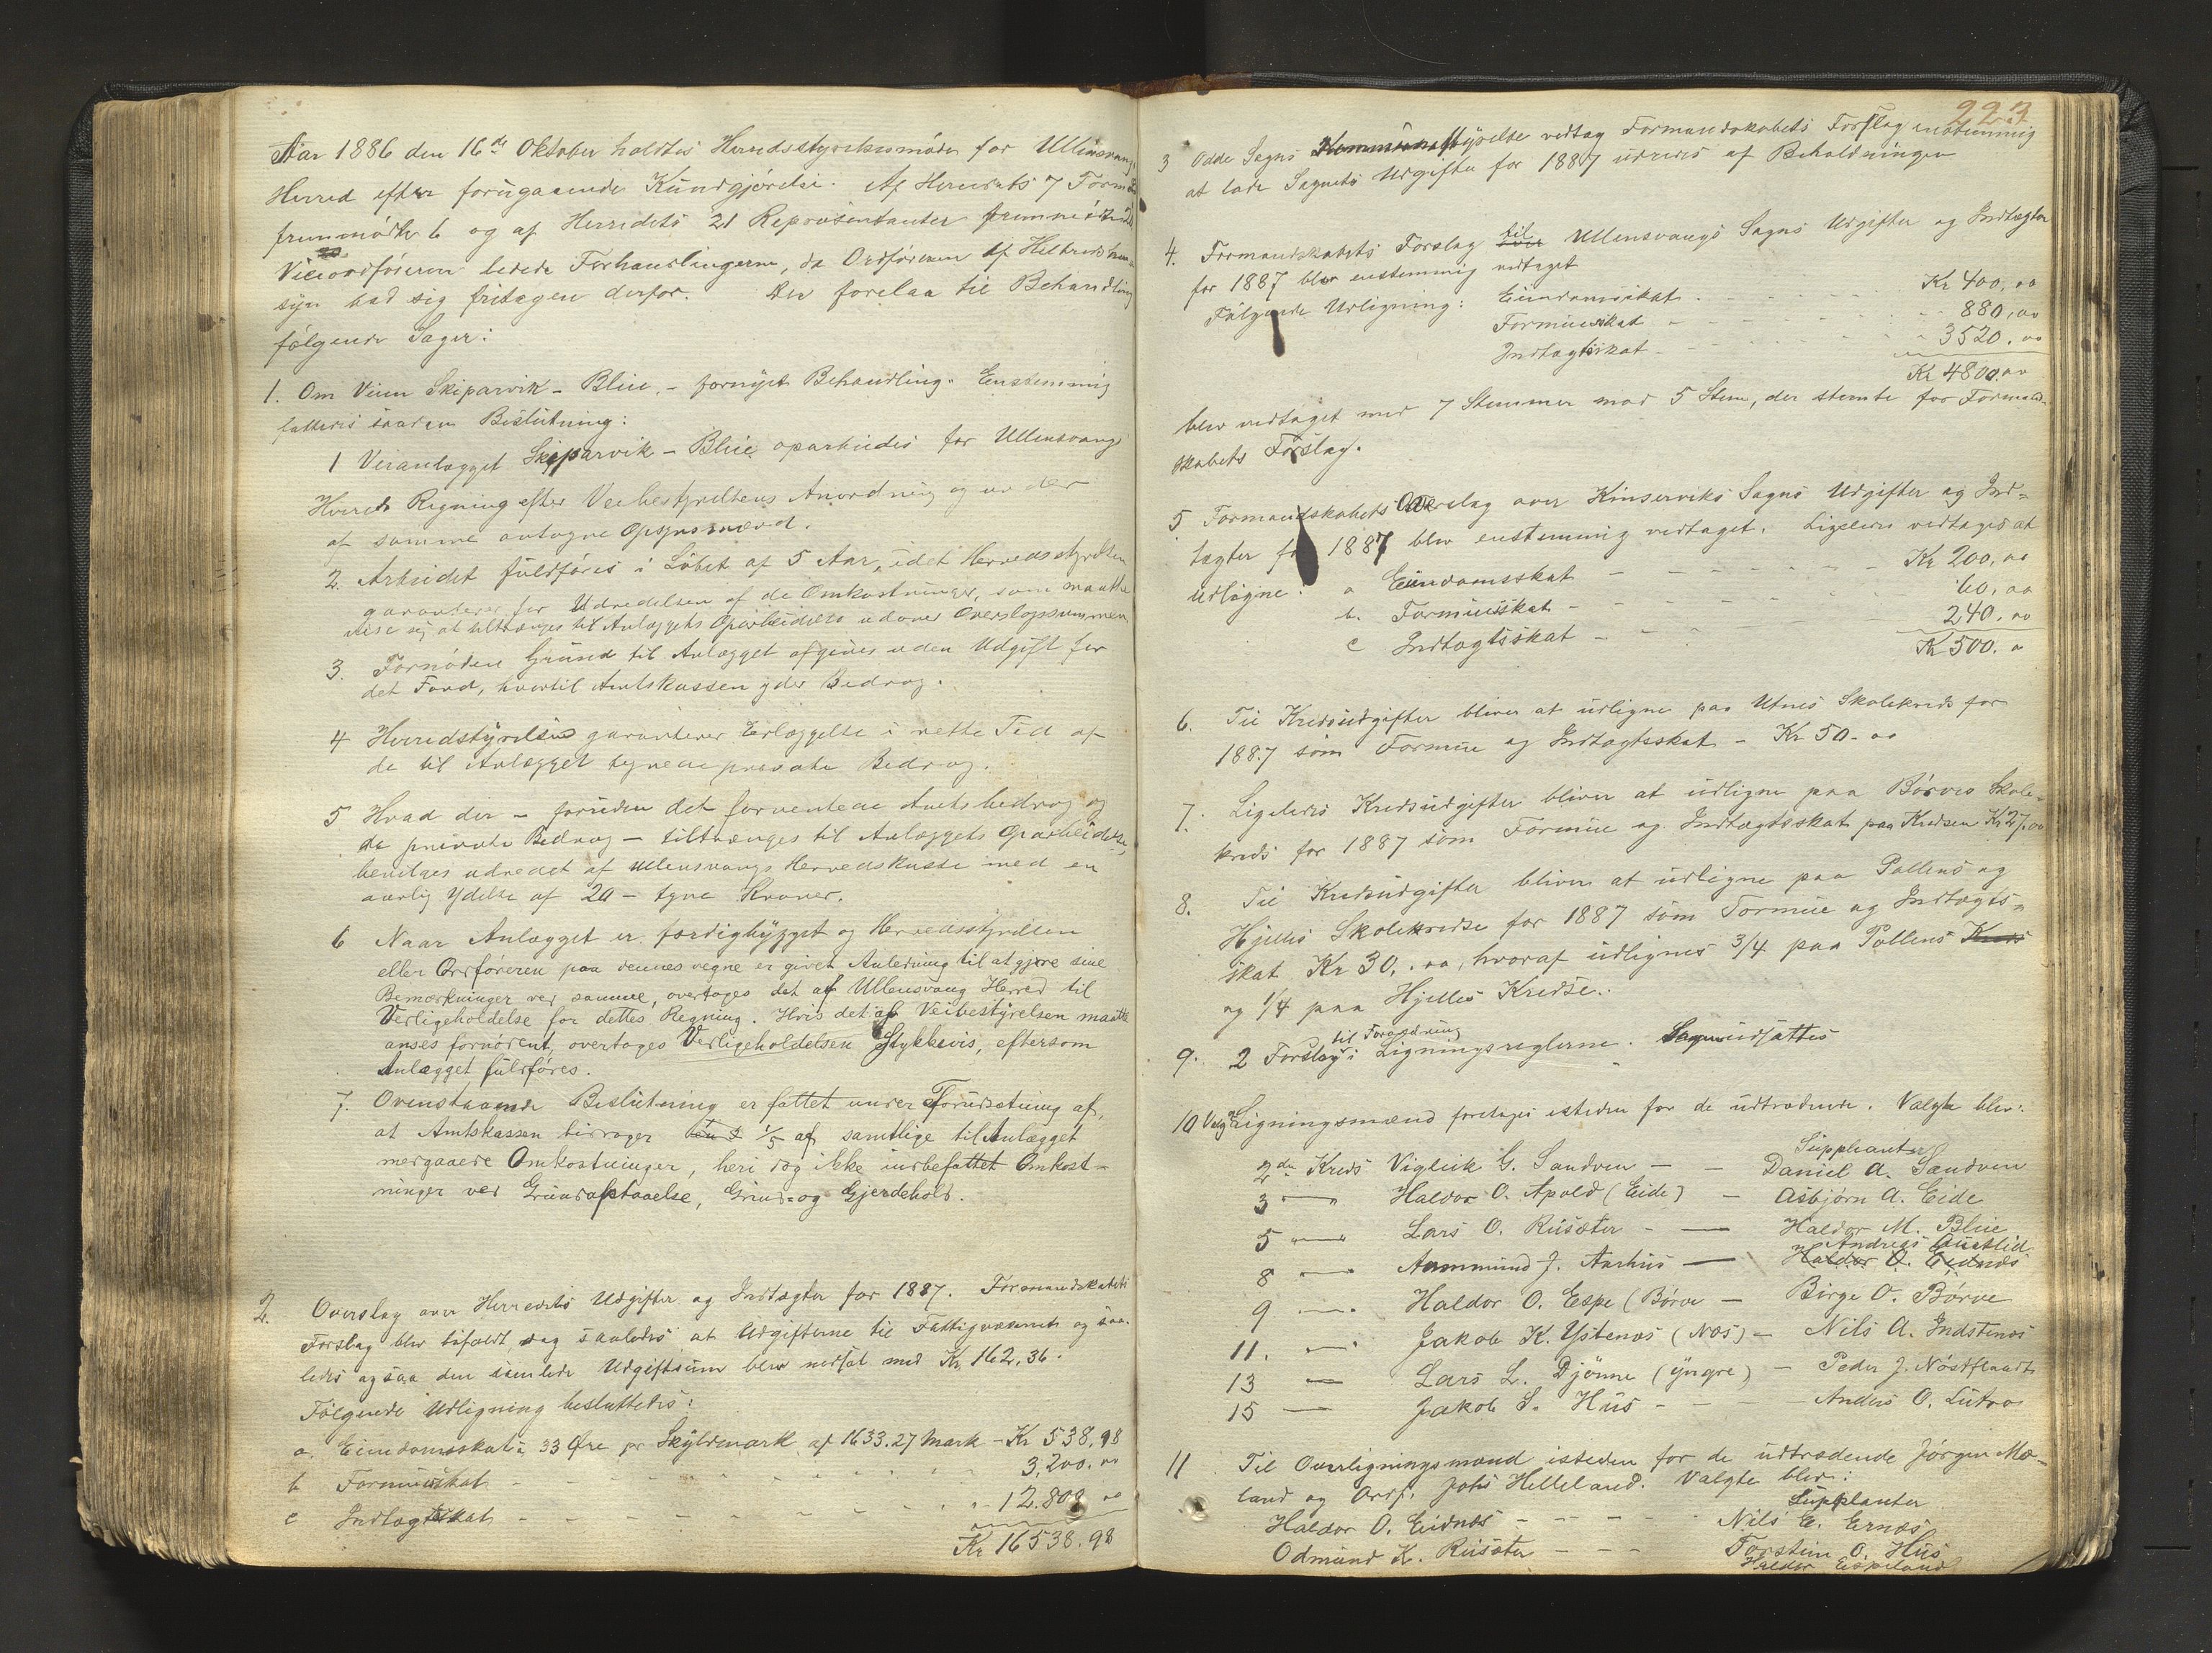 Aar 1886 den 16de Oktober holdtes Herredsstyrelsesmöde for Ullensvang
Herred efter forugaaende Kundgjörelse. Af Herredets 7 Formænd
fremmödte 6 og af Herredets 21 Repræsentanter fremmödte
Viceordföreren ledede Forhandlingerne, da Ordföreren af Helbredshen-
syn bad sig fritagen derfor. Der forelaa til Behandling
følgende Sager:
1. Om Veien Skiparvik - Blie, - fornyet Behandling. Enstemmig
fattedes saadan Beslutning:
1 Veianlægget Skiparvik - Blie oparbeides for Ullensvangs
Herreds Regning efter Veibestyrelsens Anordning og under
af samme antagne Opsynsmænd.
2. Arbeidet fuldföres i Löbet af 5 Aar, idet Herredsstyrelsen
garanterer for Udredelsen af de Omkostninger, som maatte
vise sig at tiltrænges til Anlæggets Oparbeidelse udover Overslagssummen
3. Fornöden Grund til Anlægget afgives uden Udgift for
det Fond, hvortil Amtskassen yder Bidrag.
4 Herredstyrelsen garanterer Erlæggelse i rette Tid af
de til Anlægget tegnede private Bidrag.
5 Hvad der - foruden det forventede Amtsbidrag og
de private Bidrag - tiltrænges til Anlæggets Oparbeidelse,
bevilges udredet af Ullensvangs Herredskasse med en
aarlig Ydelse af 20 - tyve Kroner.
6 Naar Anlægget er færdigbygget og Herredsstyrelsen
eller Ordföreren paa dennes vegne er givet Anledning til at gjøre sine
Bemærkninger ved samme, overtages det af Ullensvang Herred til
Vedligeholdelse for dettes Regning. Hvis det af Veibestyrelsen maatte
anses fornödent, overtages Vedligeholdelsen Stykkevis, eftersom
Anlægget fuldføres.
7. Ovenstaaende Beslutning er fattet under Forudsætning af,
at Amtskassen bidrager 1/5 af samtlige til Anlægget
medgaaede Omkostninger, heri dog ikke indbefattet Omkost-
ninger ved Grundafstaaelse, Grind- og Gjerdehold.
2. Overslag over Herredets Udgifter og Indtægter for 1887. Formandskabets
Forslag blev bifaldt, dog saaledes at Udgifterne til Fattigvæsenet og saa-
ledes ogsaa den samlede Udgiftsum blev nedsat med Kr. 162.36.
Følgende Udligning besluttedes:
a. Eiendomsskat à 33 Øre pr Skyldmark af 1633.27 Mark - Kr 538,98
b Formueskat - 3,200.00
c Indtægtskat - 12.800 00
Kr 16538.98
223
3 Odde Sogns Kommunestyrelse vedtog Formandskabets Forslag enstemmig
at lade Sognets Udgifter for 1887 udredes af Beholdningen
4. Formandskabets Forslag til over Ullensvangs Sogns Udgifter og Indtægter
for 1887 blev enstemmig vedtaget
Følgende Udligning: Eiendomsskat - Kr 400,00
Formueskat - 880,00
Indtægtskat - 3520.00
Kr 4800.00
blev vedtaget med 7 Stemmer mod 5 Stem, der stemte for Formand-
skabets Forslag.
5 Formandskabets Overslag over Kinserviks Sogns Udgifter og Ind-
tægter for 1887 blev enstemmig vedtaget. Ligeledes vedtages at
udligne: a Eiendomsskat - Kr 200,00
b. Formueskat - 60,00
c Indtægtsskat - 240.00
Kr 500.0
6. Til Kredsudgifter bliver at udligne paa Utnes Skolekreds for
1887 som Formue og Indtægtsskat - Kr 50.00
7. Ligeledes Kredsudgifter bliver at udligne paa Börves Skole-
kreds for 1887 som Formue og Indtægtsskat paa Kredsen Kr 27.00
8. Til Kredsudgifter bliver at udligne paa Pollens og
Hjelles Skolekredse for 1887 som Formue og Indtægts-
skat Kr 30.00, hvoraf udlignes 3/4 paa Pollens Kreds
og 1/4 paa Hjelles Kredse.
til Forandring
9. 2 Forslag i Ligningsreglerne. Sagen udsattes
10 Valg Ligningsmænd foretages isteden for de udtrædende. Valgte blev:
Suppleanter
2den Kreds Vigleik G. Sandven - - Daniel A. Sandven
3 — " Haldor O. Apold (Eide) - Asbjørn A. Eide
5 — Lars O. Rusæter - — Haldor M. Blie
Andreas Austlid
8 — Aammund J. Aarhus — Haldor O. Eidnes
9 — Haldor O. Espe (Börve - Birge O. Börve
11. — Jakob K. Ystenæs (Næs) - Nils A. Indstenæs
13 — Lars L. Djönne (yngre) - Peder J. Nöstflaadt
15 — Jakob S. Hus - - - Anders O. Lutro
11 Til Overligningsmænd isteden for de udtrædende Jörgen Mæ-
land og Ordf. Johs Helleland. Valgte blev:
Suppleanter
Haldor O. Eidnes - - - - Nils E. Ernæs
Odmund K. Rusæter - - - Torstein O. Hus
Haldor Espeland